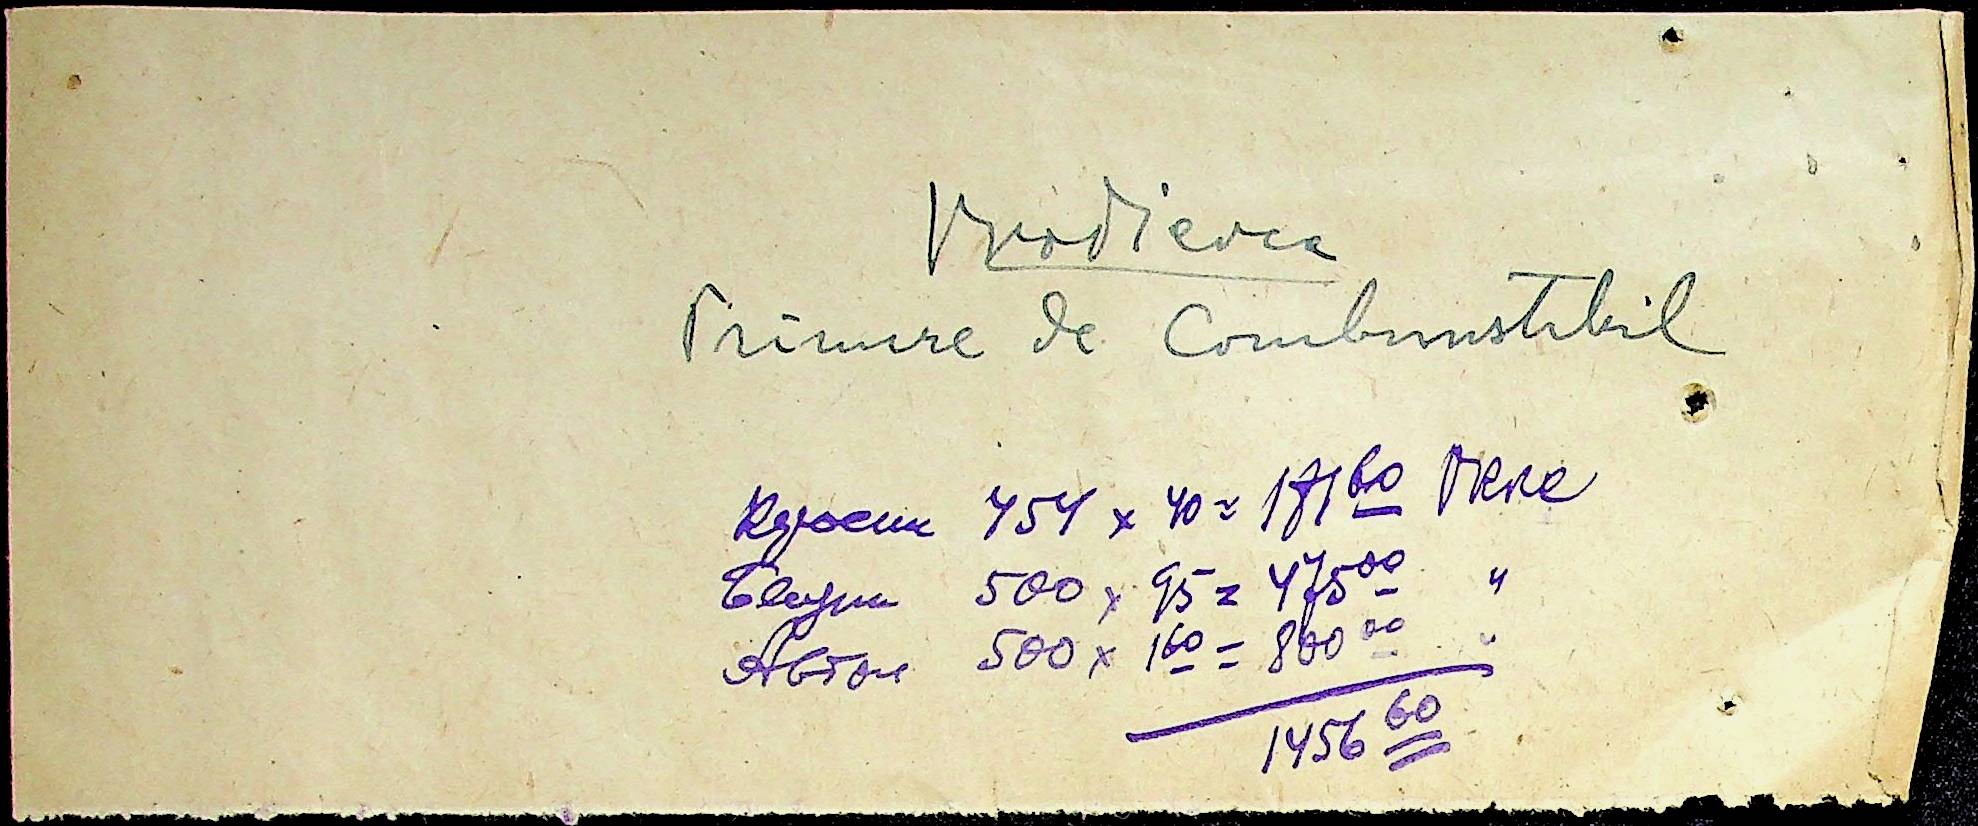 Vradievca
Primire de Combunstibil
Керосин 454 x 40 = 181 60
Бензин 500 x 95 = 475 00 "
Автол 500 x 1 60 = 800 00 "
1456 60